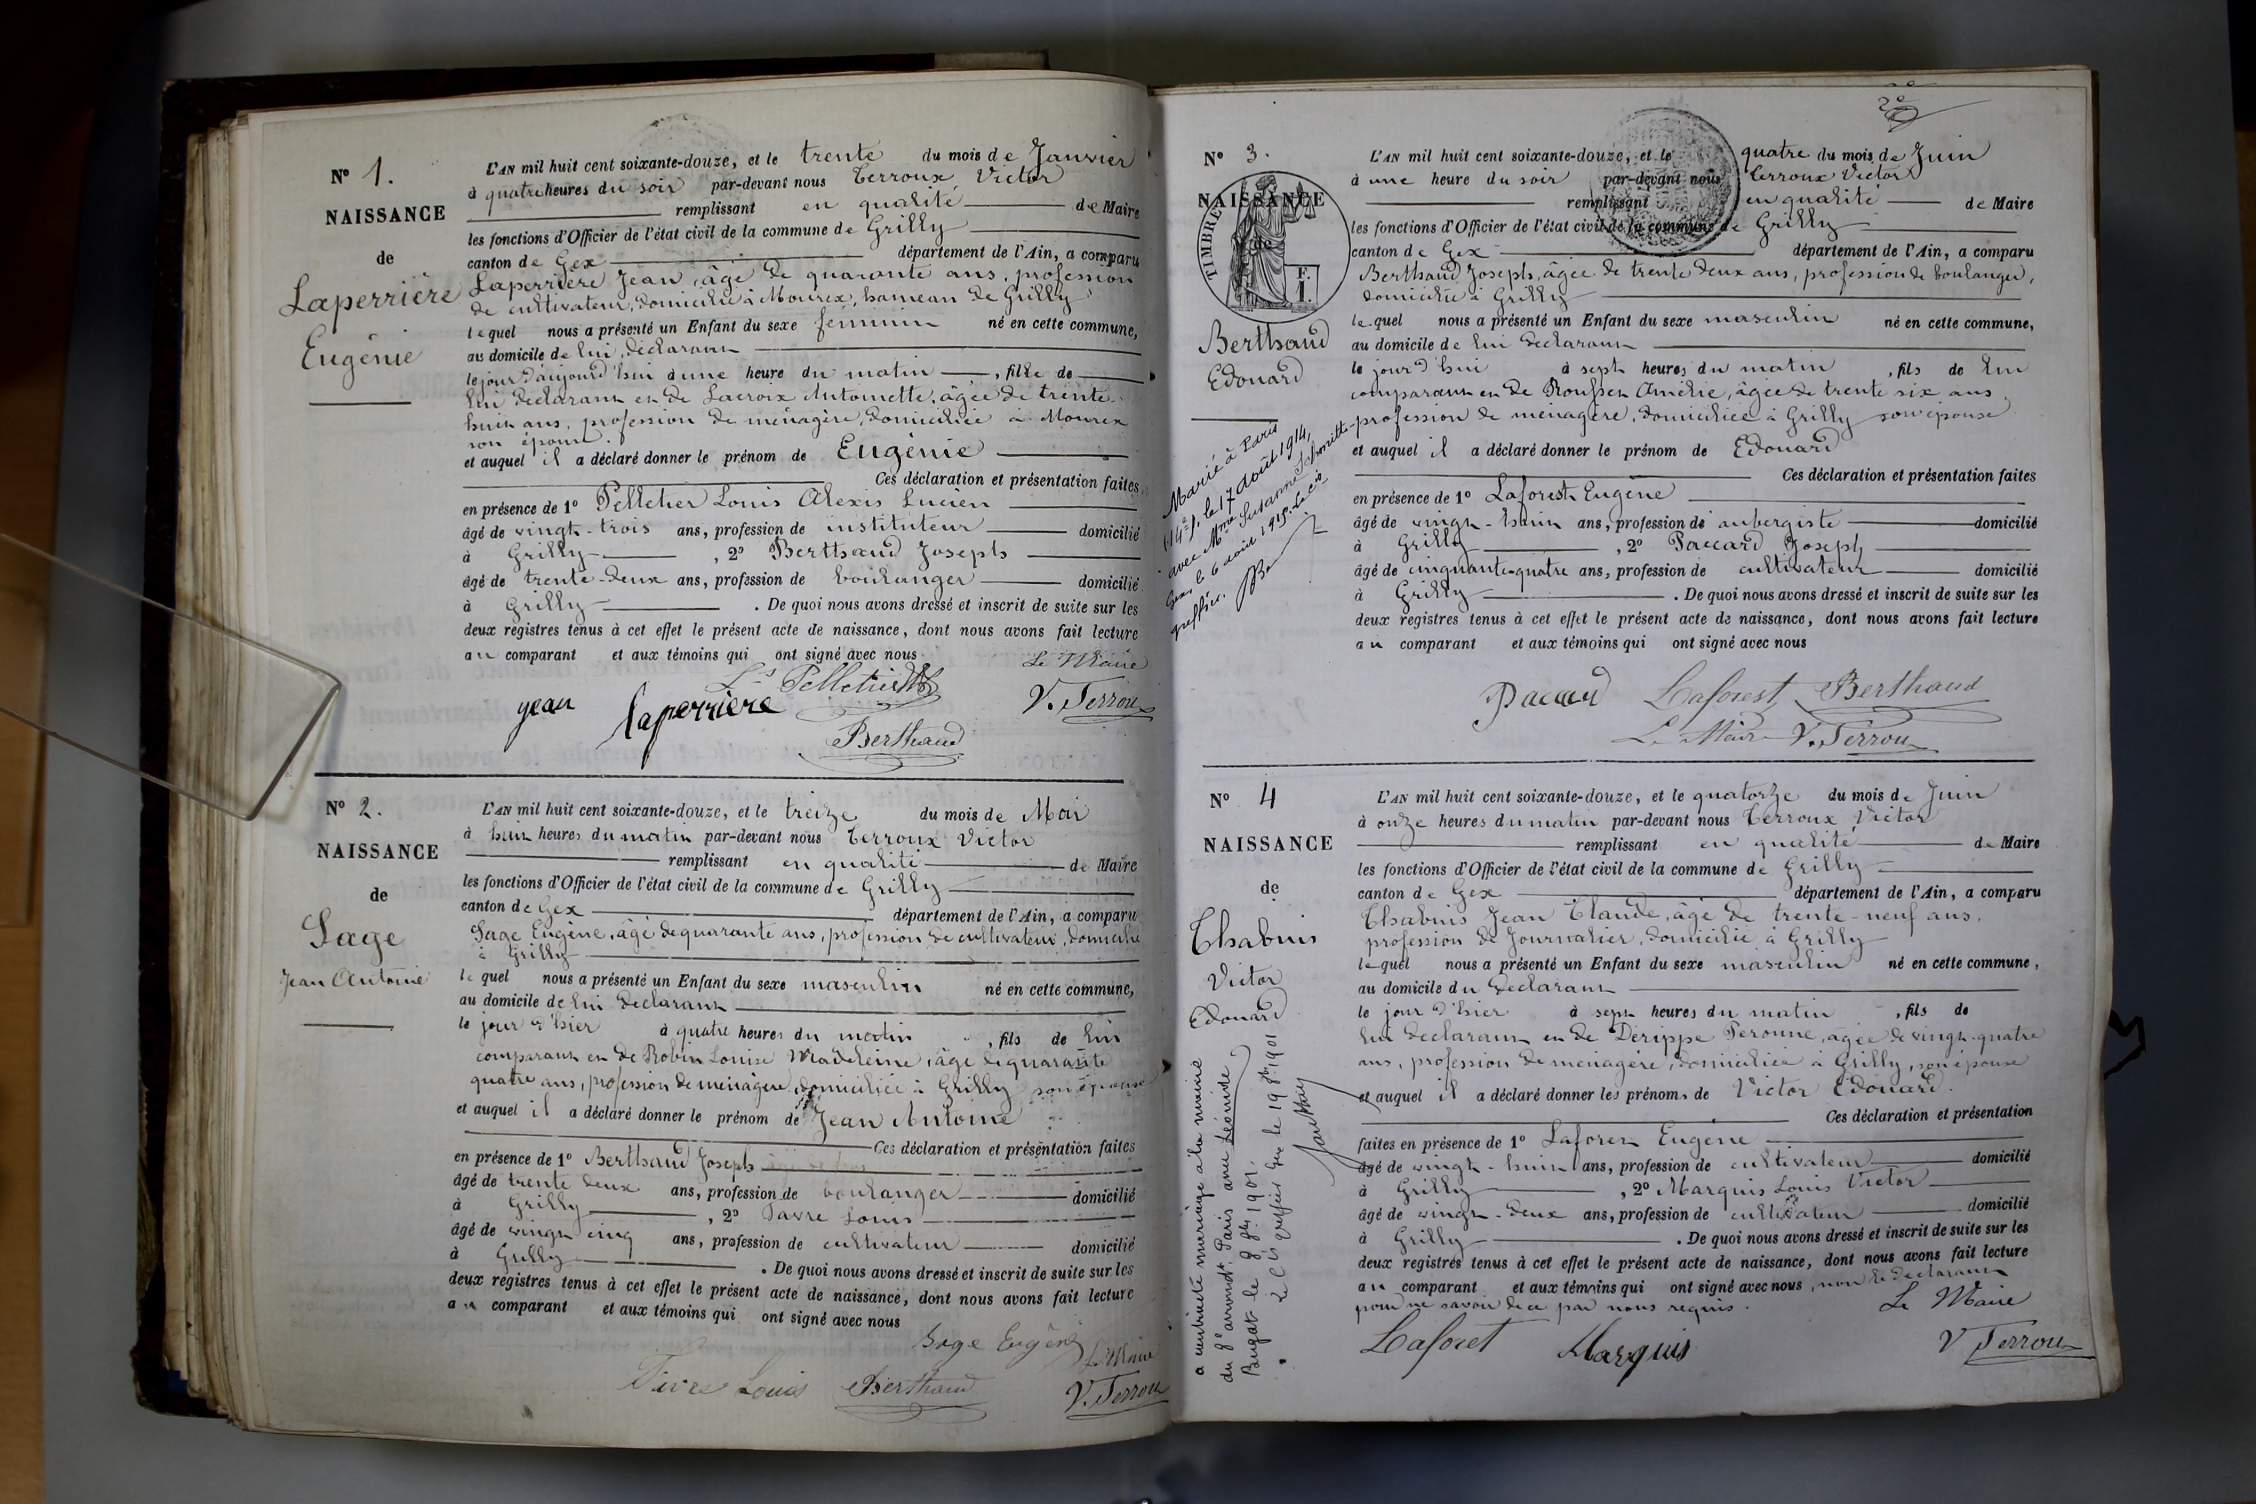 N° 1.
NAISSANCE
de
Laperrière
Eugénie
L'AN mil huit cent soixante-douze, et le trente du mois de Janvier
à quatre heures du soir par-devant nous Terroux Victor
remplissant en qualité de Maire
les fonctions d'Officier de l'état civil de la commune de Grilly
canton de Gex département de l'Ain, a comparu
Laperrière Jean, âgé de quarante ans, profession
de cultivateur, domicilié à Mourex, hameau de Grilly
lequel nous a présenté un Enfant du sexe féminin né en cette commune,
au domicile de lui déclarant
le jour d'aujourd'hui à une heure du matin, fille de
lui déclarant et de Lacroix Antoinette, âgée de trente
huit ans, profession de ménagère, domiciliée à Mourex
son épouse.
et auquel il a déclaré donner le prénom de Eugénie
Ces déclaration et présentation faites
en présence de 1° Pelletier Louis Alexis Lucien
âgé de vingt-trois ans, profession de instituteur domicilié
à Grilly, 2° Berthaud Joseph
âgé de trente-deux ans, profession de boulanger domicilié
à Grilly. De quoi nous avons dressé et inscrit de suite sur les
deux registres tenus à cet effet le présent acte de naissance, dont nous avons fait lecture
au comparant et aux témoins qui ont signé avec nous
Le Maire
Ls Pelletier
jean laperrière
V. Terroux
Berthaud
N° 2.
NAISSANCE
de
Sage
Jean Antoine
L'AN mil huit cent soixante-douze, et le treize du mois de Mai
à huit heures du matin par-devant nous Terroux Victor
remplissant en qualité de Maire
les fonctions d'Officier de l'état civil de la commune de Grilly
canton de Gex département de l'Ain, a comparu
Sage Eugène, âgé de quarante ans, profession de cultivateur, domicilié
à Grilly
lequel nous a présenté un Enfant du sexe masculin né en cette commune,
au domicile de lui déclarant
le jour d'hier à quatre heures du matin, fils de lui
comparant et de Robin Louise Madeleine, âgé de quarante
quatre ans, profession de ménagère, domiciliée à Grilly son épouse
et auquel il a déclaré donner le prénom de Jean Antoine
Ces déclaration et présentation faites
en présence de 1° Berthaud Joseph
âgé de trente deux ans, profession de boulanger domicilié
à Grilly, 2° Favre Louis
âgé de vingt cinq ans, profession de cultivateur domicilié
à Grilly. De quoi nous avons dressé et inscrit de suite sur les
deux registres tenus à cet effet le présent acte de naissance, dont nous avons fait lecture
au comparant et aux témoins qui ont signé avec nous
Sage Eugène Le Maire
Louis Berthaud V. Terroux
N° 3.
NAISSANCE
de
TIMBRE
F.
I.
Berthaud
Edouard
Marié à Paris
(14e), le 17 août 1914,
avec Mme Susanne Schmitt
Gex, le 6 août 1915. Le cis
greffier.
L'AN mil huit cent soixante-douze, et le quatre du mois de Juin
à une heure du soir par-devant nous Terroux Victor
remplissant en qualité de Maire
les fonctions d'Officier de l'état civil de la commune de Grilly
canton de Gex département de l'Ain, a comparu
Berthaud Joseph, âgée de trente deux ans, profession de boulanger,
domicilié à Grilly
lequel nous a présenté un Enfant du sexe masculin né en cette commune,
au domicile de lui déclarant
le jour d'hui à sept heures du matin, fils de lui
comparant et de Amélie, âgée de trente six ans,
profession de ménagère, domiciliée à Grilly son épouse
et auquel il a déclaré donner le prénom de Edouard
Ces déclaration et présentation faites
en présence de 1° Laforest Eugène
âgé de vingt-huit ans, profession de aubergiste domicilié
à Grilly, 2° Paccard Joseph
âgé de cinquante-quatre ans, profession de cultivateur domicilié
à Grilly. De quoi nous avons dressé et inscrit de suite sur les
deux registres tenus à cet effet le présent acte de naissance, dont nous avons fait lecture
au comparant et aux témoins qui ont signé avec nous
Paccard Laforest Berthaud
Le Maire V. Terroux
N° 4
NAISSANCE
de
Thabuis
Victor
Edouard
a contracté mariage à la mairie
du 8e arrondt Paris avec Léonide
Bugat le 8 1901.
Le Cis greffier Gex le 19 1901
L'AN mil huit cent soixante-douze, et le quatorze du mois de Juin
à onze heures du matin par-devant nous Terroux Victor
remplissant en qualité de Maire
les fonctions d'Officier de l'état civil de la commune de Grilly
canton de Gex département de l'Ain, a comparu
Thabuis Jean Claude, âgé de trente-neuf ans,
profession de Journalier, domicilié à Grilly
lequel nous a présenté un Enfant du sexe masculin né en cette commune,
au domicile du déclarant
le jour d'hier à sept heures du matin, fils de
lui déclarant et de Derippe Peronne, agée de vingt-quatre
ans, profession de ménagère, domiciliée à Grilly, son épouse
et auquel il a déclaré donner les prénoms de Victor Edouard.
Ces déclaration et présentation
faites en présence de 1° Laforest Eugène
âgé de vingt-huit ans, profession de cultivateur domicilié
à Grilly, 2° Marquis Louis Victor
âgé de vingt-deux ans, profession de cultivateur domicilié
à Grilly. De quoi nous avons dressé et inscrit de suite sur les
deux registres tenus à cet effet le présent acte de naissance, dont nous avons fait lecture
au comparant et aux témoins qui ont signé avec nous, non le déclarant
pour ne savoir de ce par nous requis.
Le Maire
Laforest Marquis V Terroux